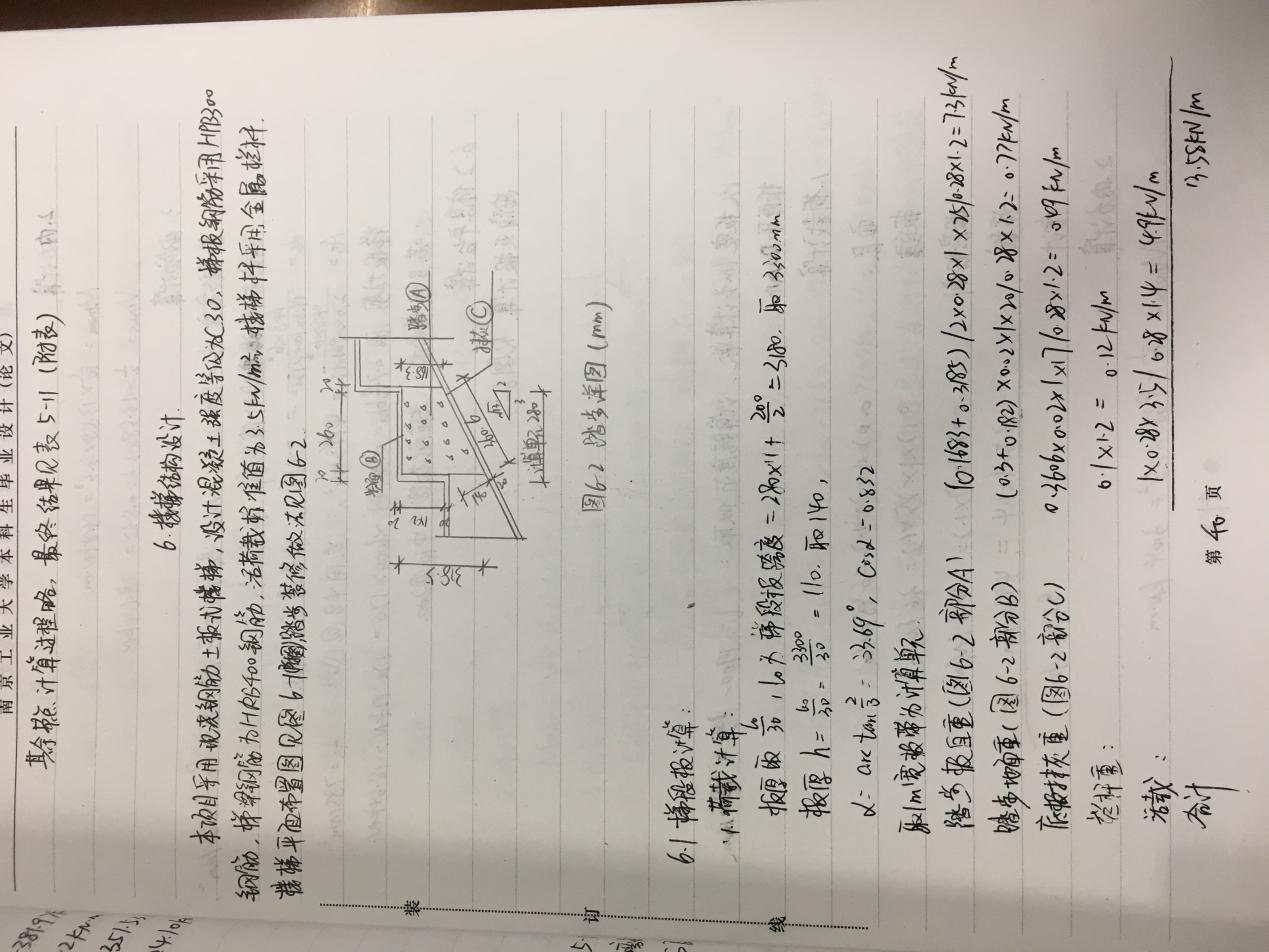 南京工业大学本科生毕业设计(论文)
其余节点计算过程略，最终结果见表5-11（附表）
6.楼梯结构设计
本项目采用现浇钢筋土板式楼梯，设计混凝土强度等级为C30，梯板钢筋采用HPB300
钢筋，梯梁钢筋为HRB400钢筋，活荷载标准值为3.5kN/m²，楼梯栏杆采用金属栏杆.
楼梯平面布置图见图6-1，踏步装修做法见图6-2
260
地面B
踏步A
183.3
318.3
280.6
抹灰C
计算单元280
图6-2 踏步详图(mm)
6.1 梯段板计算：
1.荷载计算：
板厚取l₀/30，l₀为梯段板跨度=280×11+200/2=3180. 取3300mm
板厚h=l₀/30=3300/30=110. 取140，
α=arctan 2/3=33.69°，cosα=0.832
取1m宽板带为计算单元.
踏步板自重（图6-2部分A） (0.1683+0.383)/2×0.28×1×25/0.28×1.2=7.3kN/m
踏步地面重（图6-2部分B） (0.3+0.182)×0.02×1×20/0.28×1.2=0.77kN/m
底板抹灰重（图6-2部分C） 0.3606×0.02×1×17/0.28×1.2=0.49kN/m
栏杆重： 0.1×1.2=0.12kN/m
活载： 1×0.28×3.5/0.28×1.4=4.9kN/m
合计 13.58kN/m
第40页
装
订
线
381.9
351.5